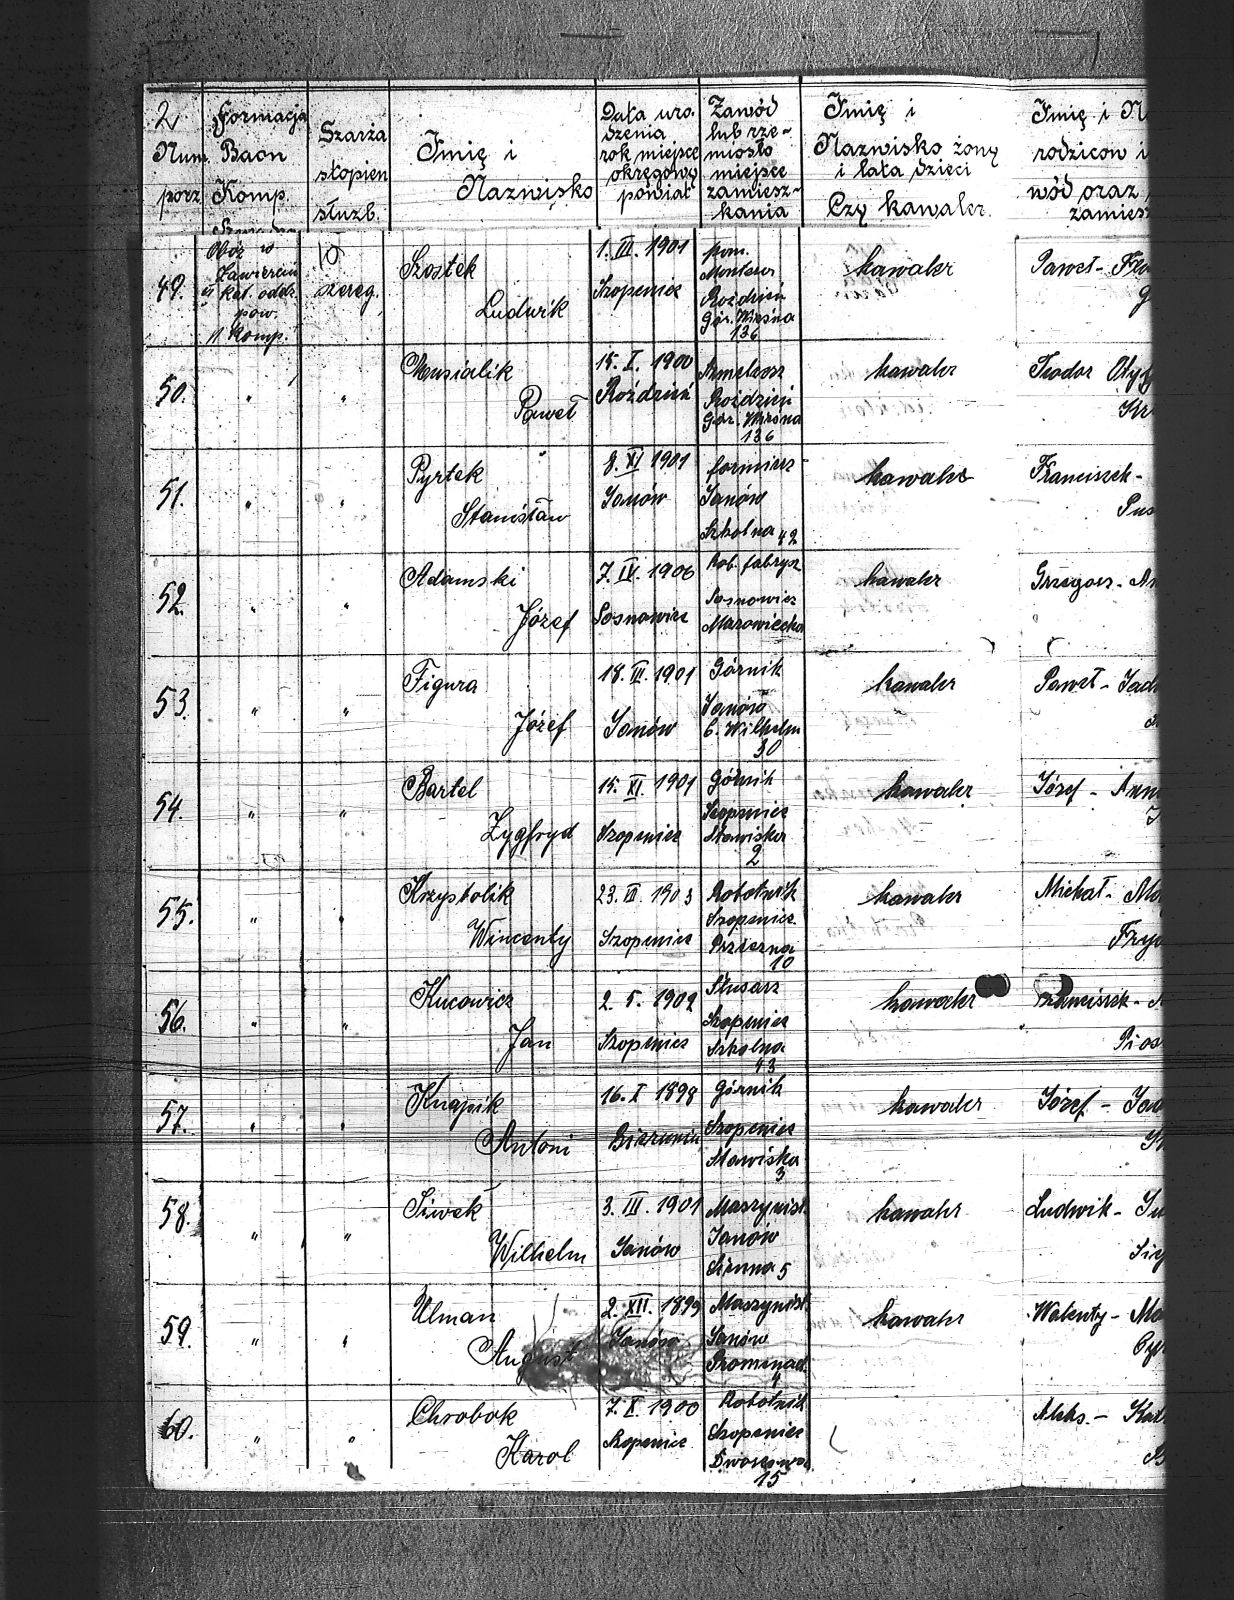 2
Num.
porz
Formacja
Baon
Komp.
Szarża
stopien
służb.
Imię i
Nazwisko
Data uro-
dzenia
rok miejsce
okręgowy
powiat
Zawód
lub rze-
miosło
miejsce
zamiesz-
kania
Imię i
Nazwisko żony
i lata dzieci
Czy kawalr.
Imię i N
rodzicow i
wód oraz
zamiesz
49.
Obóz w
Zawierciu
kat. oddz.
pow.
11 Komp.
szereg.
Szostek
Ludwik
1. III. 1901
Szopenice
Rożdzień
136
kawalr
Paweł-
50.
"
"
Musialik
Paweł
15. I. 1900
Rożdzień
Rożdzień
136
kawalr
Teodor
51.
"
"
Pyrtek
Stanisław
8. XI 1901
Janów
formierz
Janów
Szkolna 42
kawalr
Franciszek-
52.
"
"
Adamski
Józef
7. IV. 1906
Sosnowice
Rob. fabrycz
Sosnowice
Mazowiecka
kawalr
Grzegorz-
53.
"
"
Figura
Józef
18. III. 1901
Janów
Górnik
Janów
C. Wilhelm
30
kawalr
Paweł-
54.
"
"
Bartel
Zygfryd
15. XI. 1901
Szopenice
Górnik
Szopenice
Stawiska
2
kawalr
Józef - Ann
55.
"
"
Krzystolik
Wincenty
23. III. 1903
Szopenice
Robotnik
Szopenice
10
kawalr
Michał-
56.
"
"
Kucowicz
Jan
2. 5. 1902
Szopenice
Słusarz
Szopenice
Szkolna
43
kawalr
Franciszek-
Pios
57.
"
"
Knapik
Antoni
16. I 1898
Górnik
Szopenice
Stawiska
3
kawalr
Józef -
58.
"
"
Siwek
Wilhelm
3. III. 1901
Janów
Maszynist.
Janów
5
kawalr
Ludwik-
59.
"
"
Ulman
August
2. XII. 1899
Janów
Maszynist
Janów
Promenad.
4
kawalr
Walenty -
60.
"
"
Chrobok
Karol
7. X. 1900
Szopenice
Robotnik
Szopenice
Dworcowa
15
Aleks. -